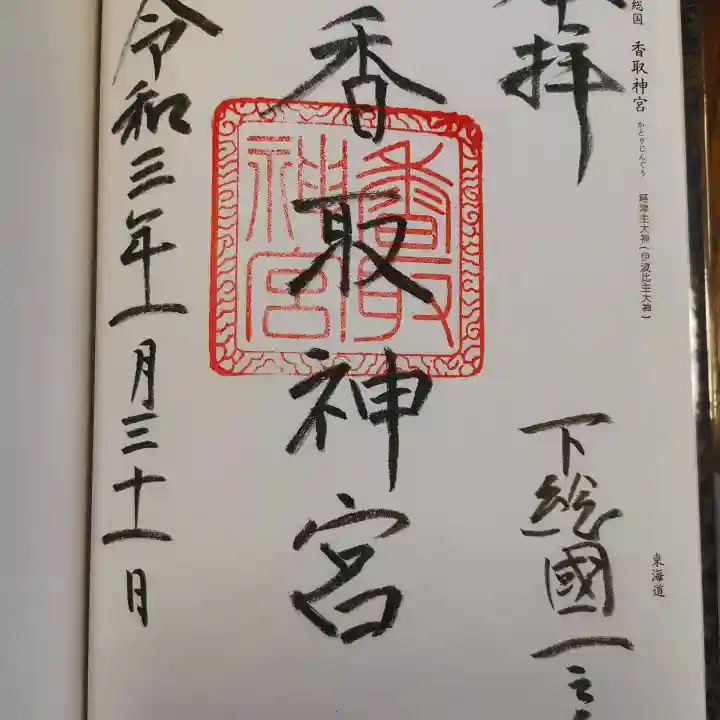 総国 香取神宮 かとりじんぐう 経津主大神(伊波比主大神)
東海道
拝
下総國一之
香取神宮
香取神宮
令和三年一月三十一日